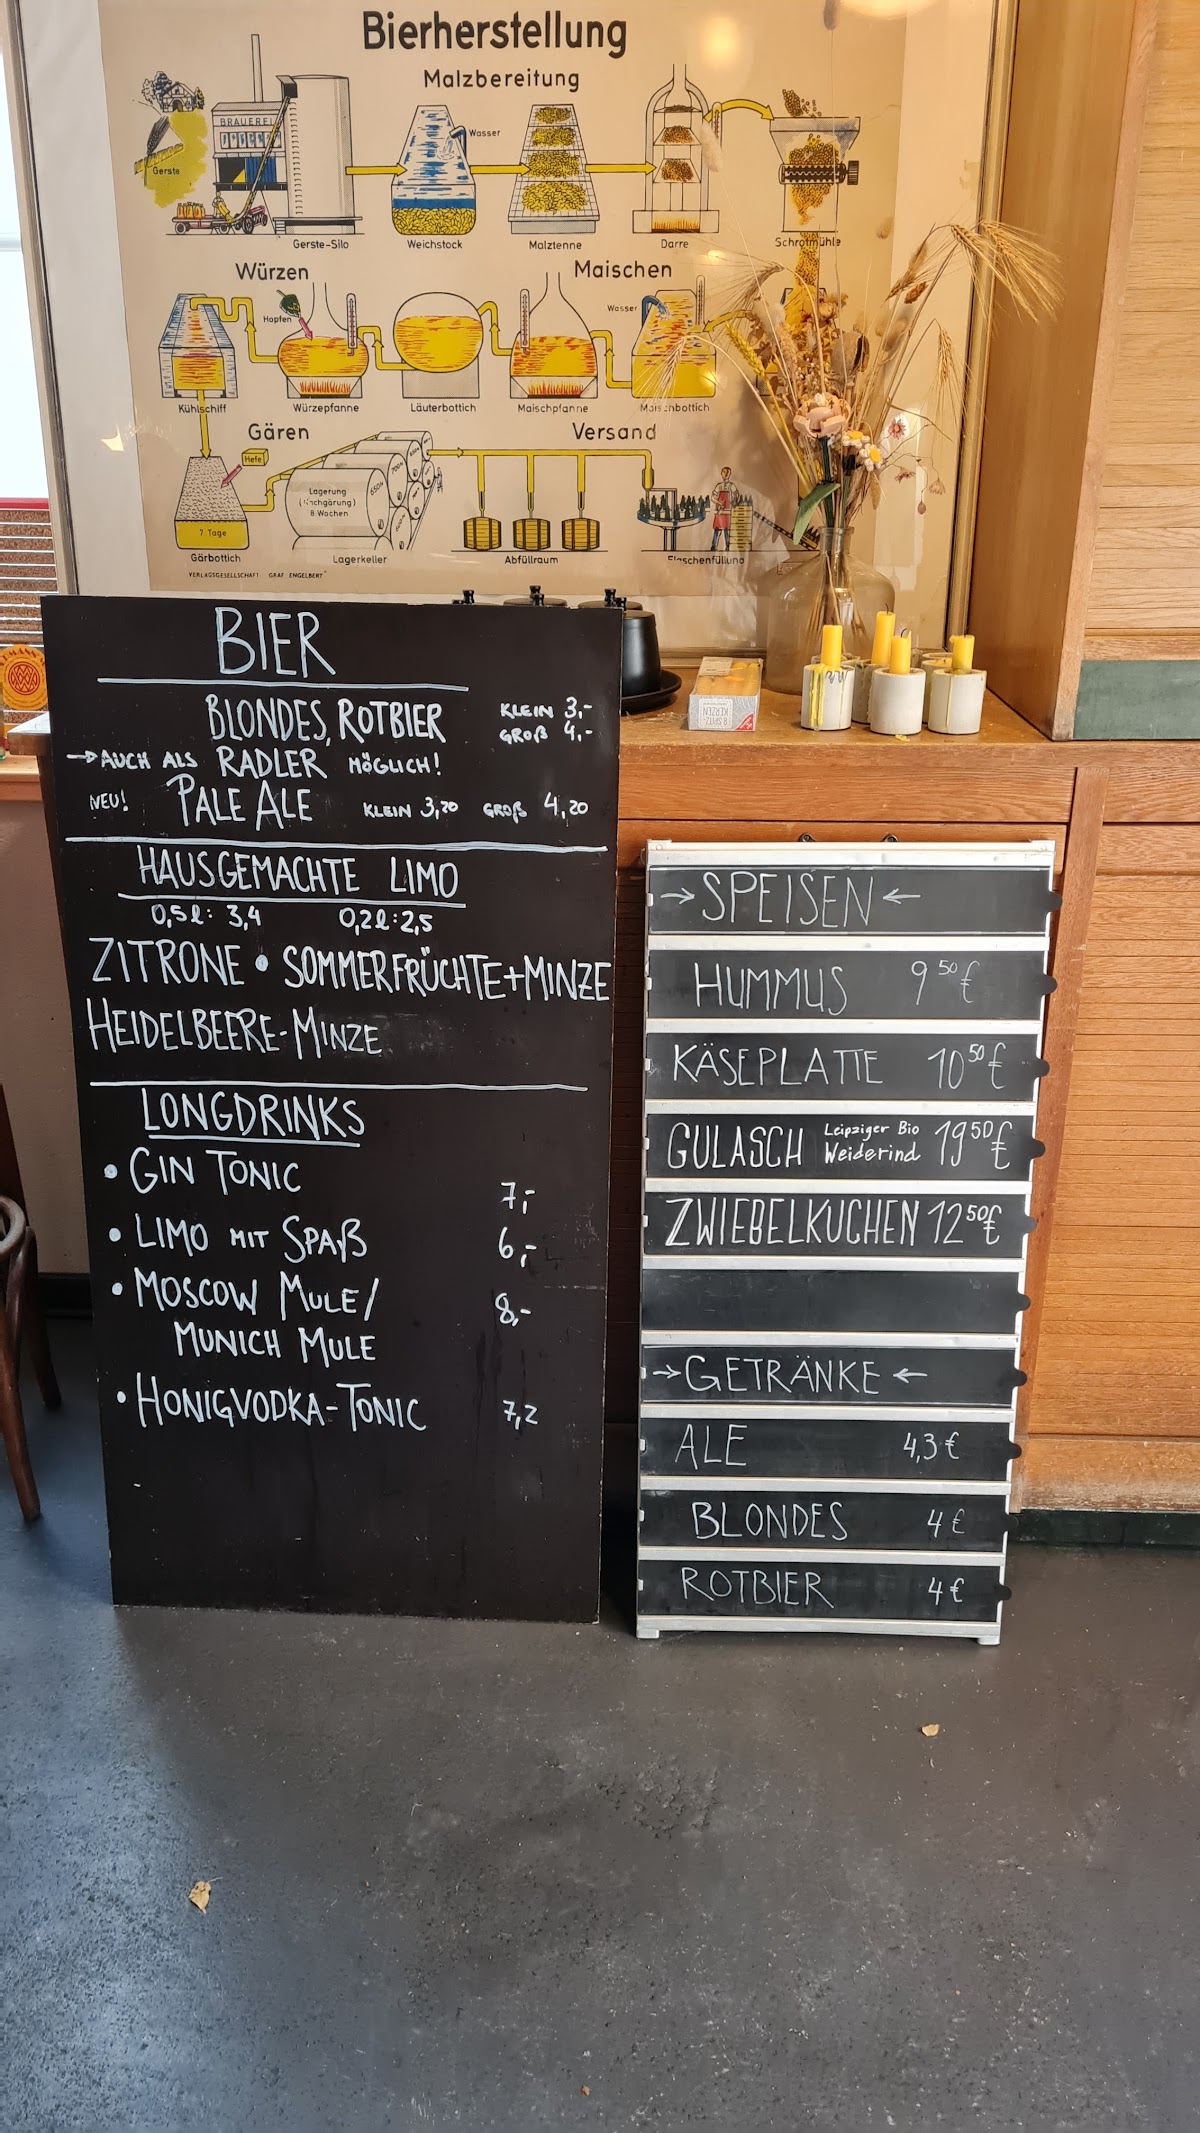 Bierherstellung
Malzbereitung
BRAUEREI
Gerste
Wasser
Gerste-Silo
Weichstock
Malztenne
Darre
Schrotmühle
Würzen
Maischen
Hopfen
Wasser
Kühlschiff
Würzepfanne
Läuterbottich
Maischpfanne
Maischbottich
Gären
Versand
Hefe
Lagerung
(Nachgärung)
8 Wochen
7 Tage
Gärbottich
Lagerkeller
Abfüllraum
Flaschenfüllung
VERLAGSGESELLSCHAFT GRAF ENGELBERT
BIER
BLONDES, ROTBIER KLEIN 3,-
GROß 4,-
→ AUCH ALS RADLER MÖGLICH!
NEU! PALE ALE KLEIN 3,20 GROß 4,20
HAUSGEMACHTE LIMO
0,5l: 3,4 0,2l: 2,5
ZITRONE • SOMMERFRÜCHTE+MINZE
HEIDELBEERE-MINZE
LONGDRINKS
• GIN TONIC 7,-
• LIMO MIT SPAß 6,-
• MOSCOW MULE/ 8,-
MUNICH MULE
• HONIGVODKA-TONIC 7,2
8 SPITZ-
KERZEN
→ SPEISEN ←
HUMMUS 9 50 €
KÄSEPLATTE 10 50 €
GULASCH Leipziger Bio Weiderind 19 50 €
ZWIEBELKUCHEN 12 50 €
→ GETRÄNKE ←
ALE 4,3 €
BLONDES 4 €
ROTBIER 4 €